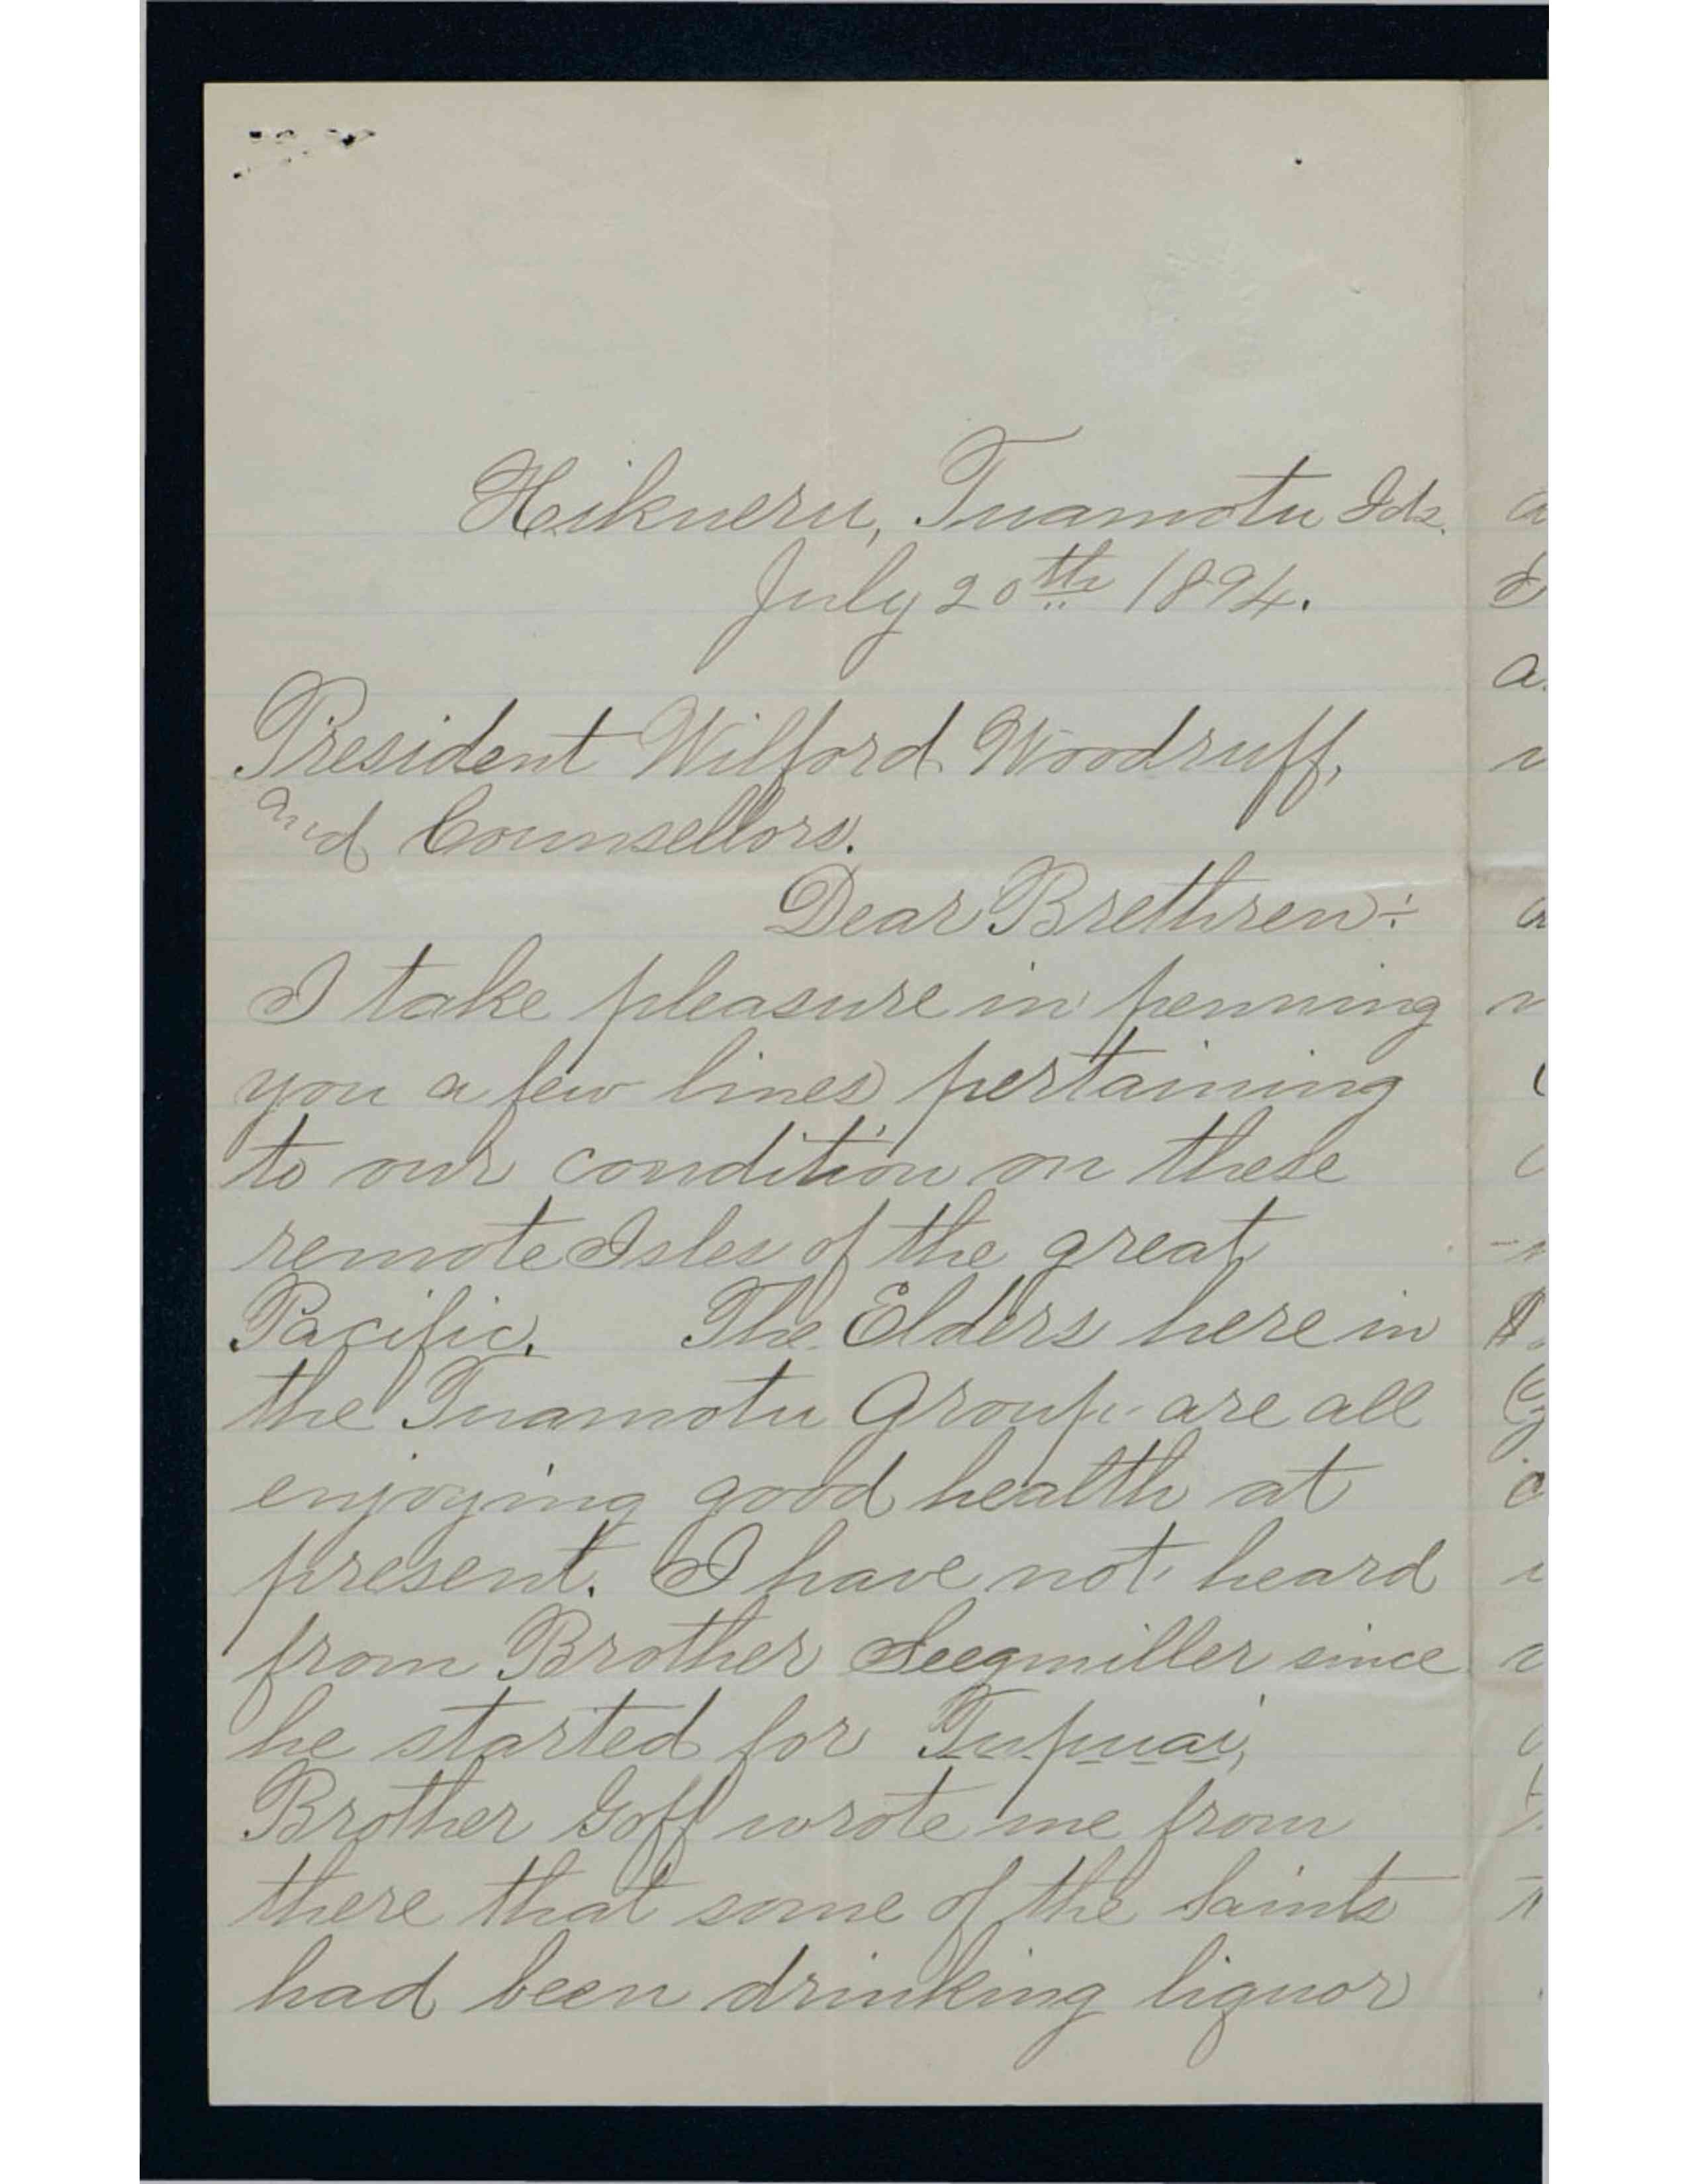 Hikueru, Tuamotu Ids.
July 20th 1894.
President Wilford Woodruff,
and Counsellors.
Dear Brethren:
I take pleasure in penning
you a few lines pertaining
to our condition on these
remote Isles of the great
Pacific. The Elders here in
the Tuamotu Group are all
enjoying good health at
present. I have not heard
from Brother Seegmiller since
he started for Tupuai,
Brother Goff wrote me from
there that some of the Saints
had been drinking liquor